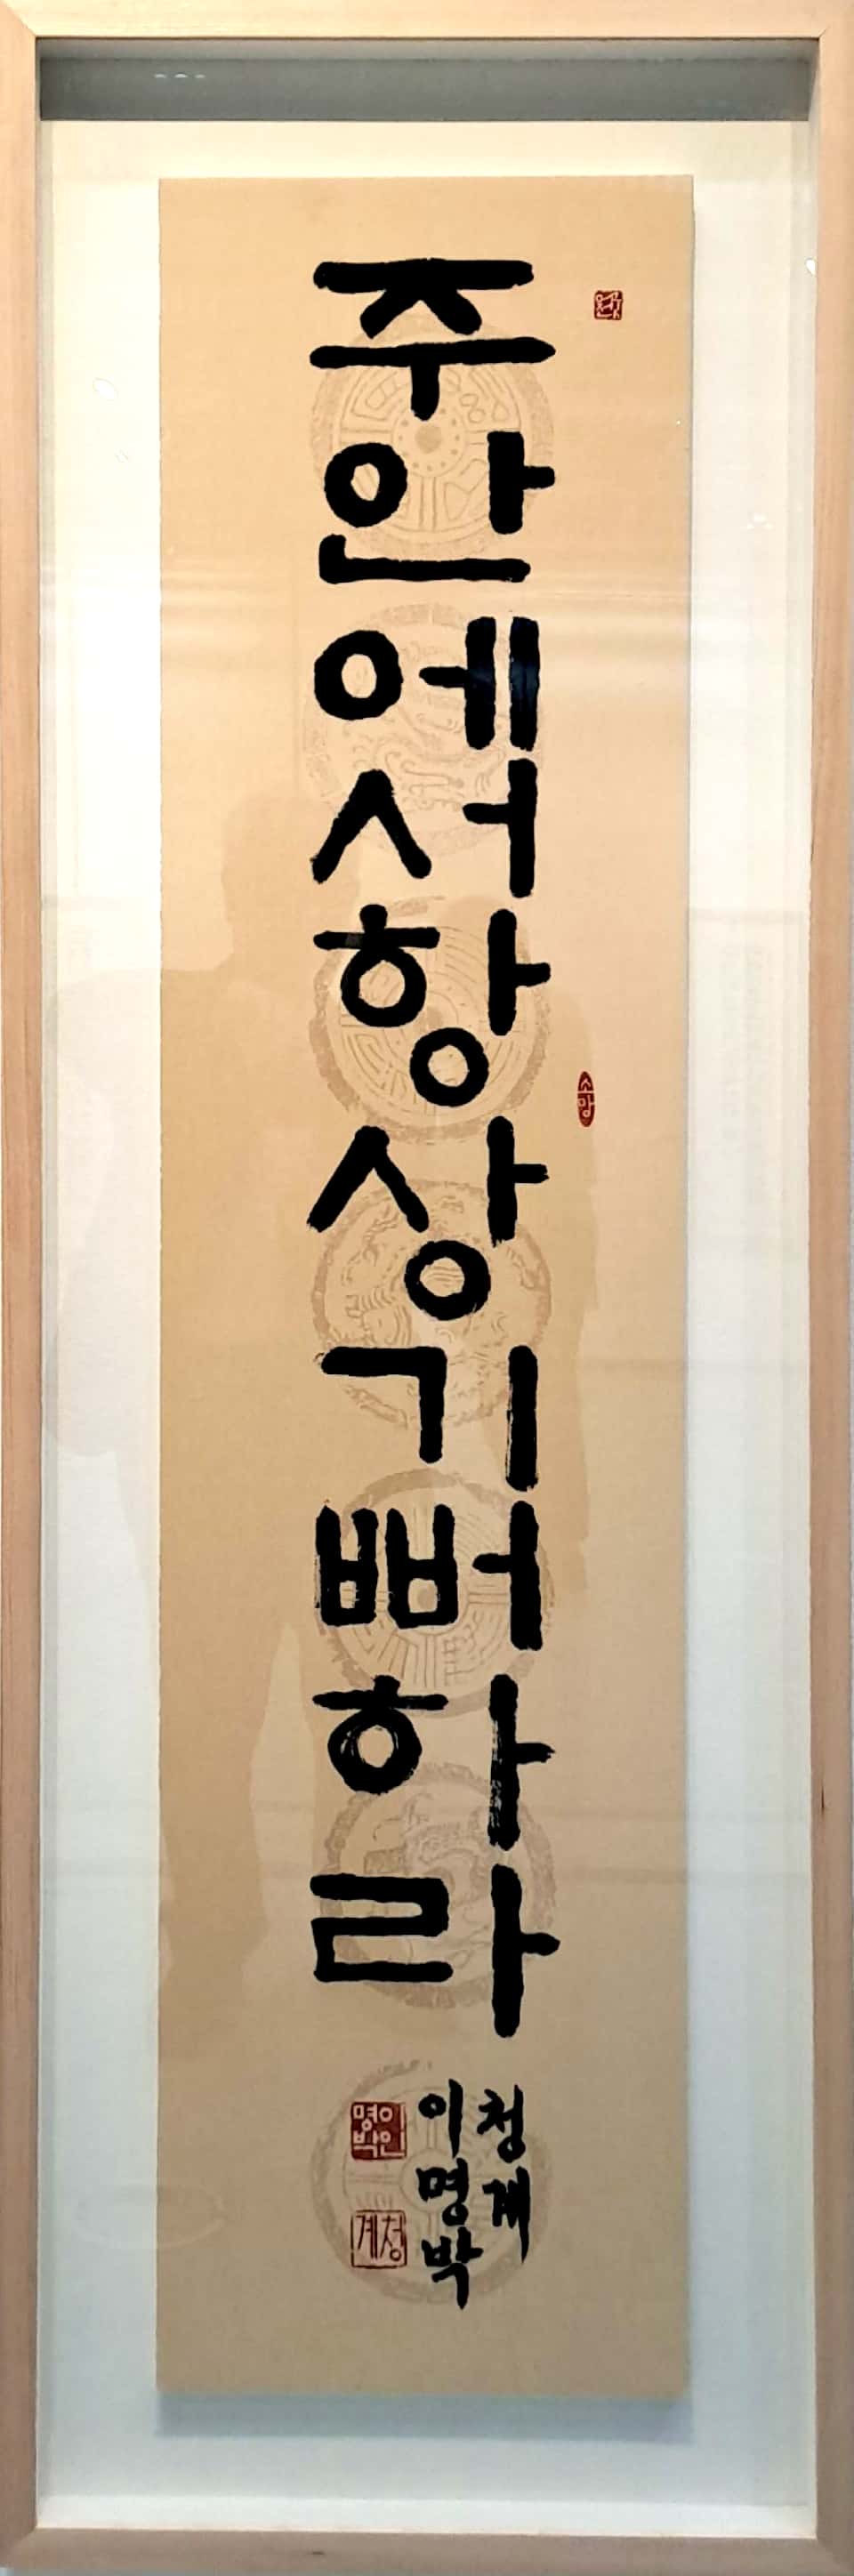 주안에서항상기뻐하라
청계
이명박
소망
이인
명박
청계